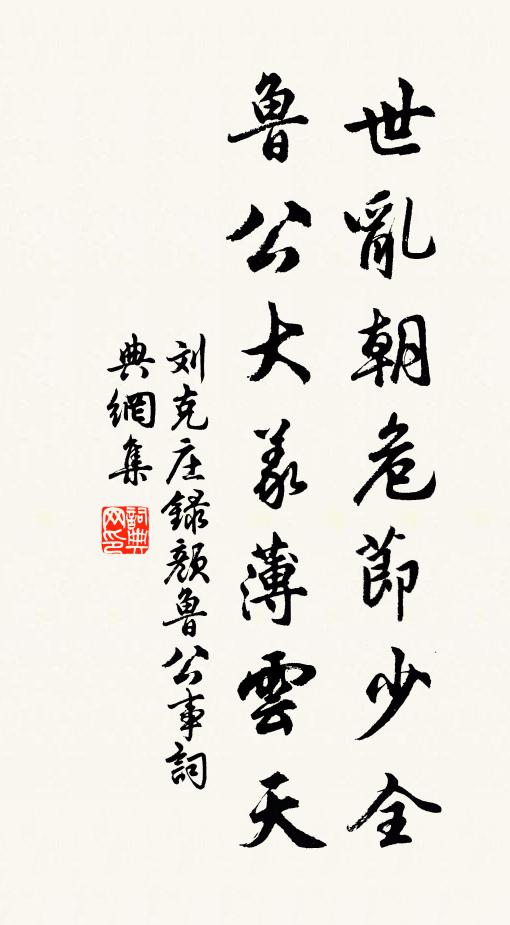 世亂朝危節少全
魯公大義薄雲天
刘克庄録顏魯公事詞
典網集
詞典
网印